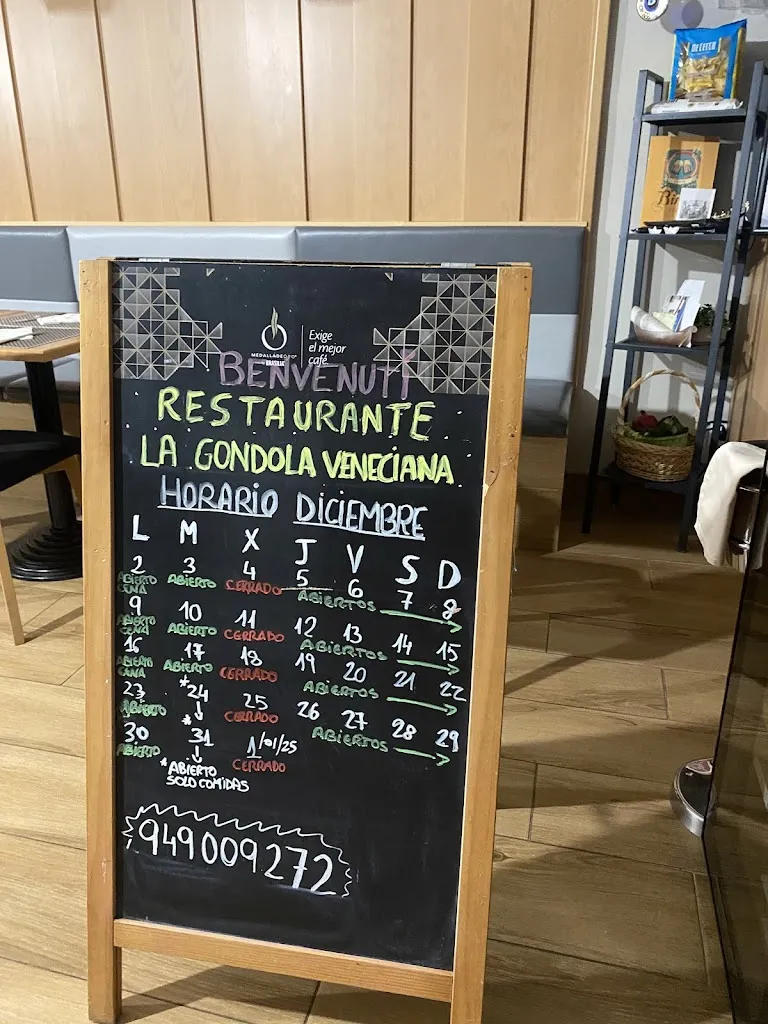 Exige
el mejor
café
MEDALLADEORO
BRASILIA
BENVENUTI
RESTAURANTE
LA GONDOLA VENECIANA
HORARIO DICIEMBRE
L M X J V S D
2 3 4 5 6 7 8
ABIERTO CENA ABIERTO CERRADO ABIERTOS
9 10 11 12 13 14 15
ABIERTO CENA ABIERTO CERRADO ABIERTOS
16 17 18 19 20 21 22
ABIERTO CENA ABIERTO CERRADO ABIERTOS
23 *24 25 26 27 28 29
ABIERTO CERRADO ABIERTOS
30 *31 1/01/25
ABIERTO CERRADO
*ABIERTO
SOLO COMIDAS
949009272